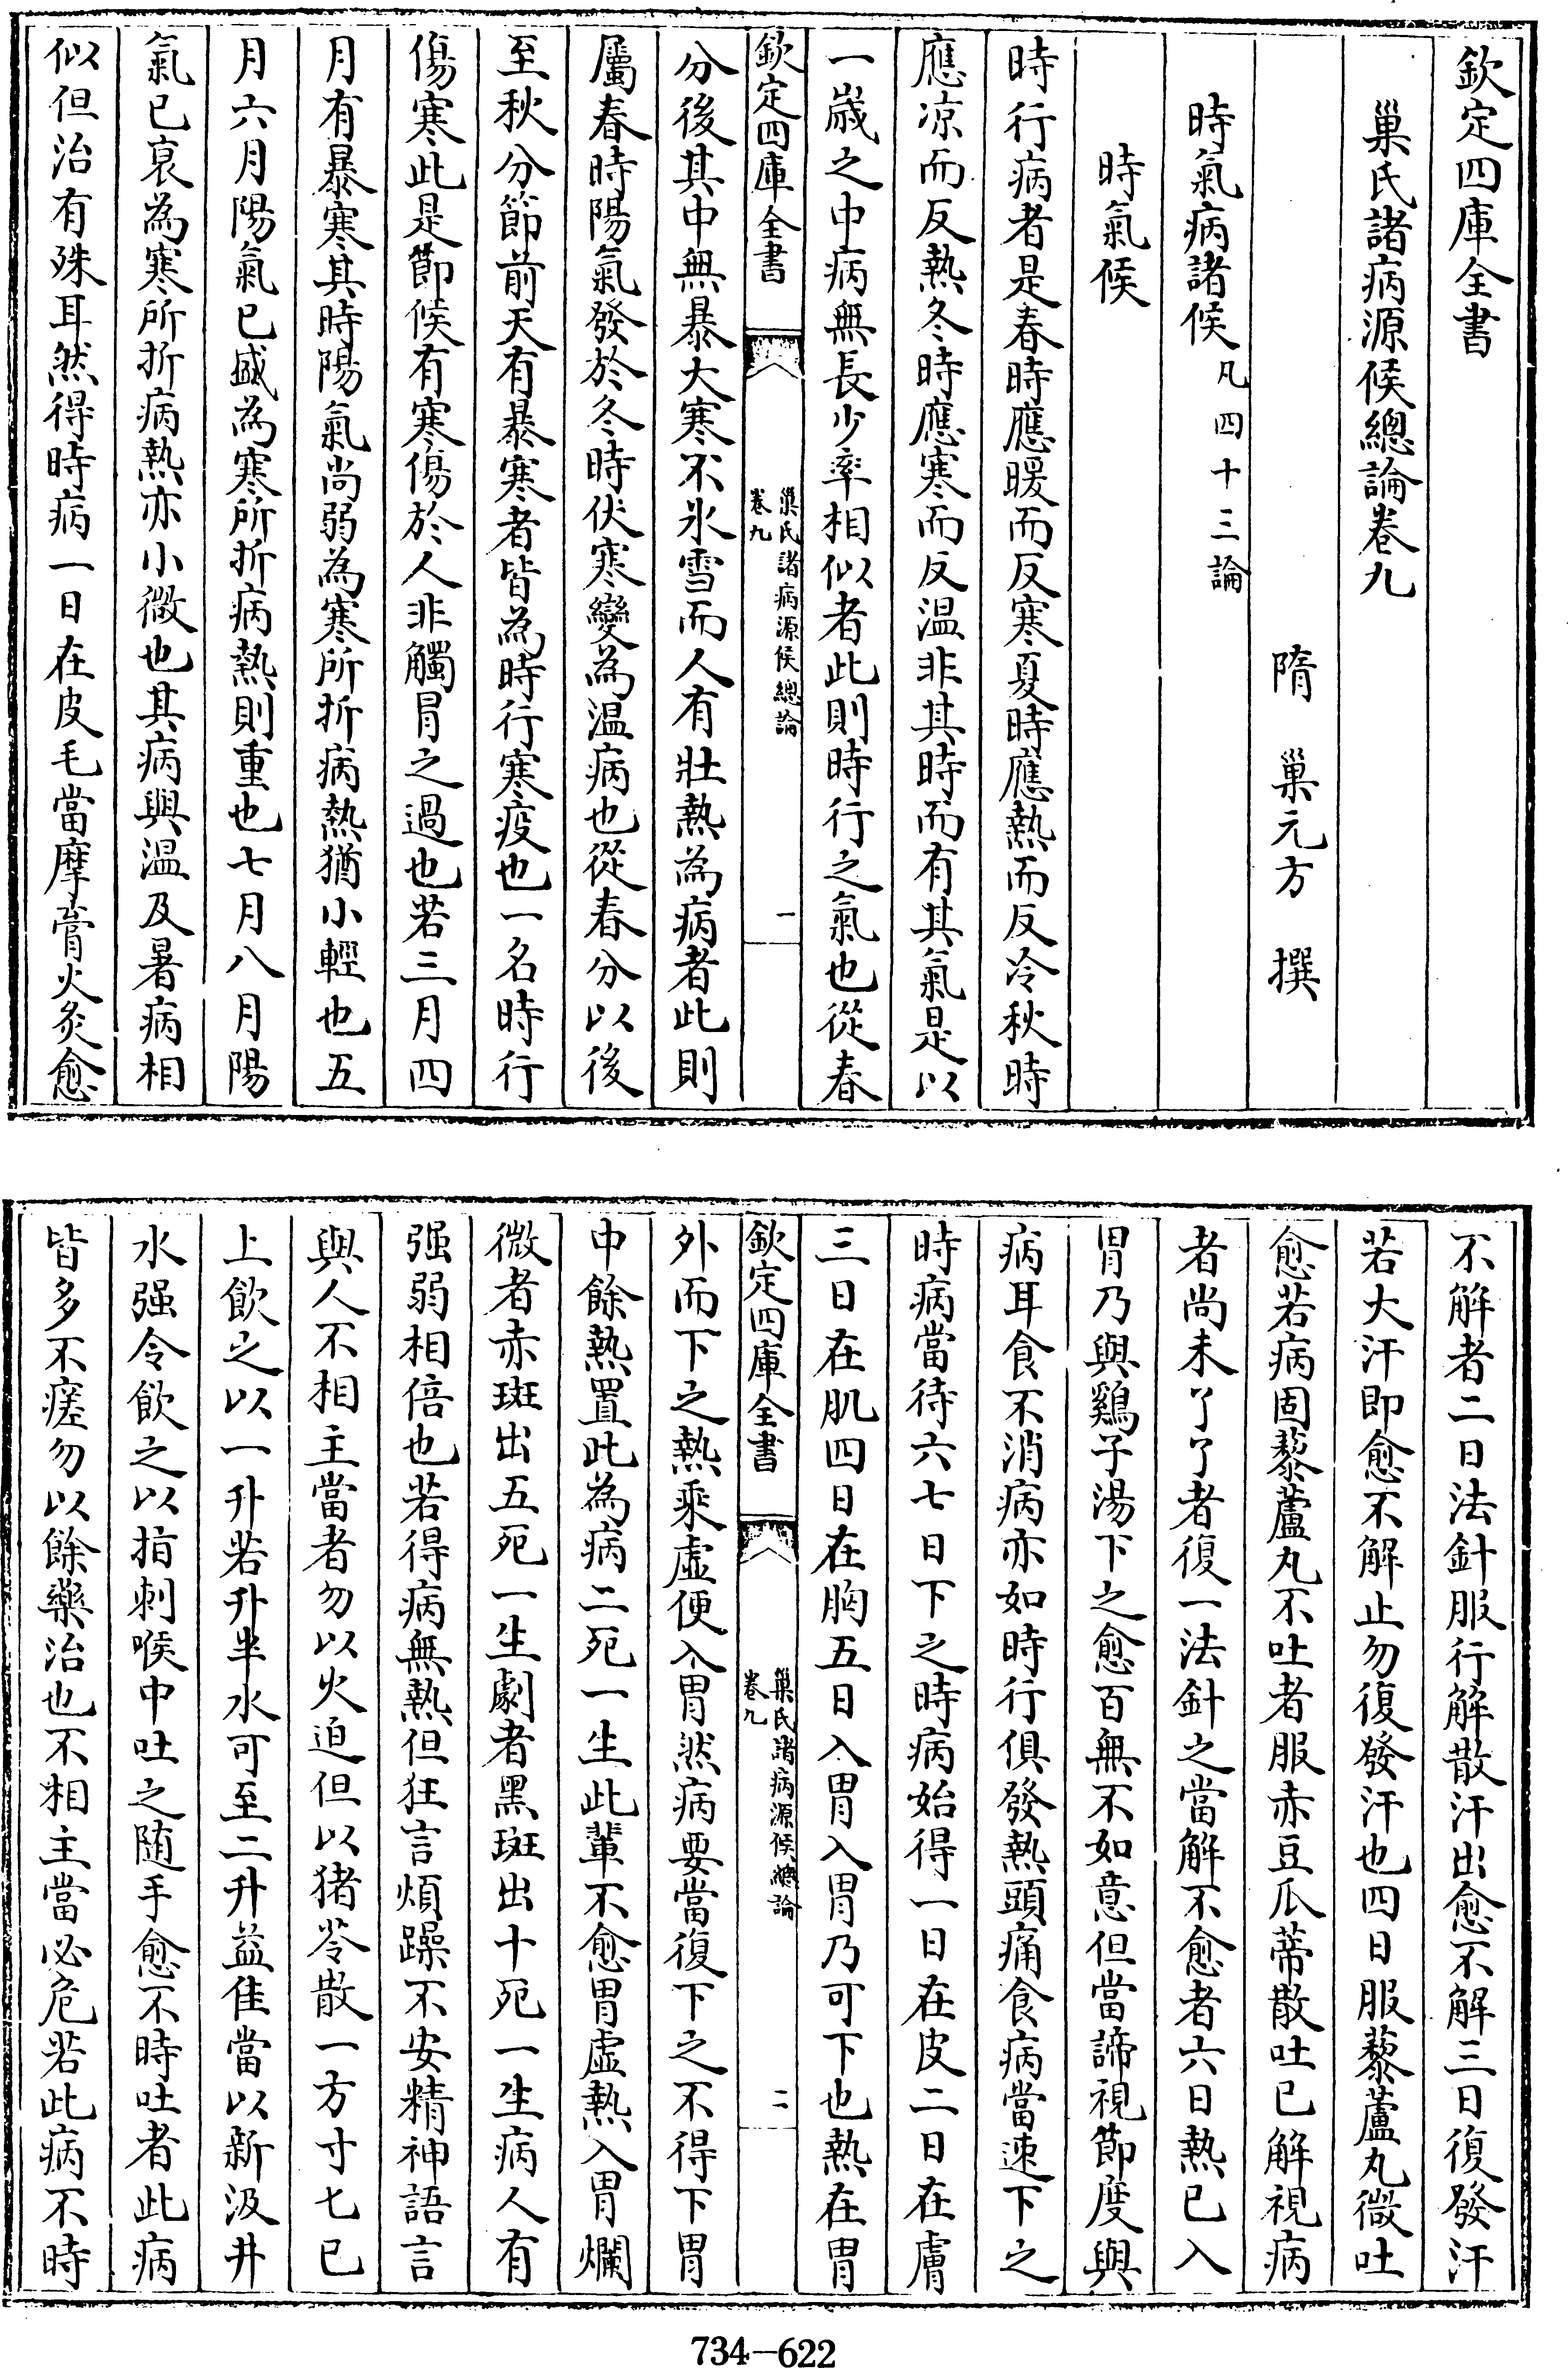 欽定四庫全書
巢氏諸病源候總論卷九
隋 巢元方 撰
時氣病諸候凡四十三論
時氣候
時行病者是春時應暖而反寒夏時應熱而反冷秋時
應凉而反熱冬時應寒而反温非其時而有其氣是以
一歲之中病無長少率相似者此則時行之氣也從春
欽定四庫全書
巢氏諸病源候總論
卷九
一
分後其中無暴大寒不氷雪而人有壯熱為病者此則
屬春時陽氣發於冬時伏寒變為温病也從春分以後
至秋分節前天有暴寒者皆為時行寒疫也一名時行
傷寒此是節候有寒傷於人非觸冒之過也若三月四
月有暴寒其時陽氣尚弱為寒所折病熱猶小輕也五
月六月陽氣已盛為寒所折病熱則重也七月八月陽
氣已衰為寒所折病熱亦小微也其病與温及暑病相
似但治有殊耳然得時病一日在皮毛當摩膏火灸愈
不解者二日法針服行解散汗出愈不解三日復發汗
若大汗即愈不解止勿復發汗也四日服藜蘆丸微吐
愈若病固藜蘆丸不吐者服赤豆瓜蒂散吐已解視病
者尚未了了者復一法針之當解不愈者六日熱已入
胃乃與鷄子湯下之愈百無不如意但當諦視節度與
病耳食不消病亦如時行俱發熱頭痛食病當速下之
時病當待六七日下之時病始得一日在皮二日在膚
三日在肌四日在胸五日入胃入胃乃可下也熱在胃
欽定四庫全書
巢氏諸病源候總論
卷九
二
外而下之熱乘虛便入胃然病要當復下之不得下胃
中餘熱置此為病二死一生此輩不愈胃虛熱入胃爛
微者赤斑出五死一生劇者黑斑出十死一生病人有
强弱相倍也若得病無熱但狂言煩躁不安精神語言
與人不相主當者勿以火迫但以猪苓散一方寸匕已
上飲之以一升若升半水可至二升益佳當以新汲井
水强令飲之以指刺喉中吐之随手愈不時吐者此病
皆多不瘥勿以餘藥治也不相主當必危若此病不時
734-622